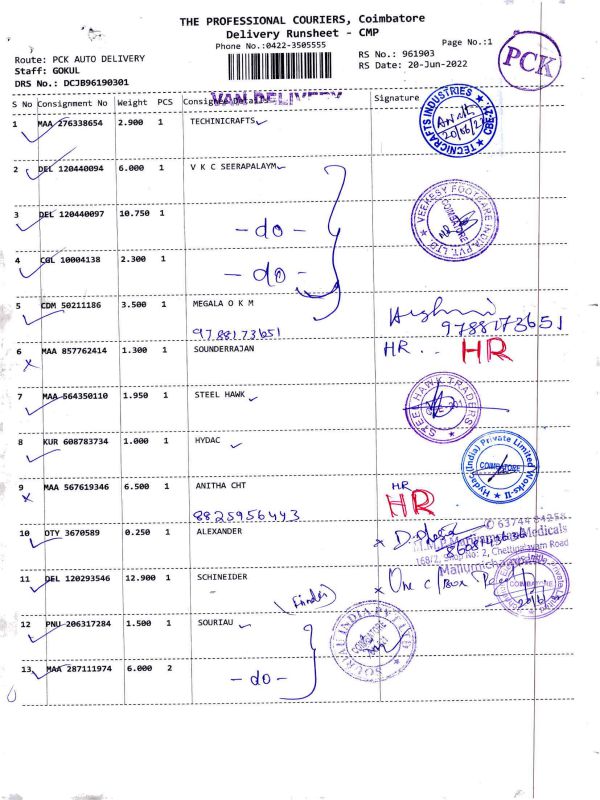 THE PROFESSIONAL COURIERS, Coimbatore
Delivery Runsheet - CMP
Phone No.:0422-3505555
Page No.:1
PCK
Route: PCK AUTO DELIVERY
RS No.: 961903
Staff: GOKUL
RS Date: 20-Jun-2022
DRS No.: DCJB96190301
VAN DELIVERY
S No Consignment No Weight PCS Consignee Details Signature
1 MAA 276338654 2.900 1 TECHINICRAFTS
TECNICRAFTS INDUSTRIES ★ CBE-21 ★
20/06/22
2 DEL 120440094 6.000 1 V K C SEERAPALAYM
VEEKESY FOOTCARE INDIA PVT. LTD.
COIMBATORE
3 DEL 120440097 10.750 1
- do -
4 CGL 10004138 2.300 1
- do -
5 CDM 50211186 3.500 1 MEGALA O K M
9788173651
9788173651
6 MAA 857762414 1.300 1 SOUNDERRAJAN
HR.. HR
x
7 MAA 564350110 1.950 1 STEEL HAWK
STEEL HAWK TRADERS
8 KUR 608783734 1.000 1 HYDAC
Hydac (India) Private Limited Works-II
COIMBATORE
9 MAA 567619346 6.500 1 ANITHA CHT
HR
HR
x
8825956443
10 OTY 3670589 0.250 1 ALEXANDER
63744 84258
Medicals
168/2, Shop No: 2, Chettipalayam Road
11 DEL 120293546 12.900 1 SCHINEIDER
x One c/Box
COIMBATORE
12 PNU 206317284 1.500 1 SOURIAU
SOURIAU INDIA PVT LTD
COIMBATORE
13 MAA 287111974 6.000 2
- do -